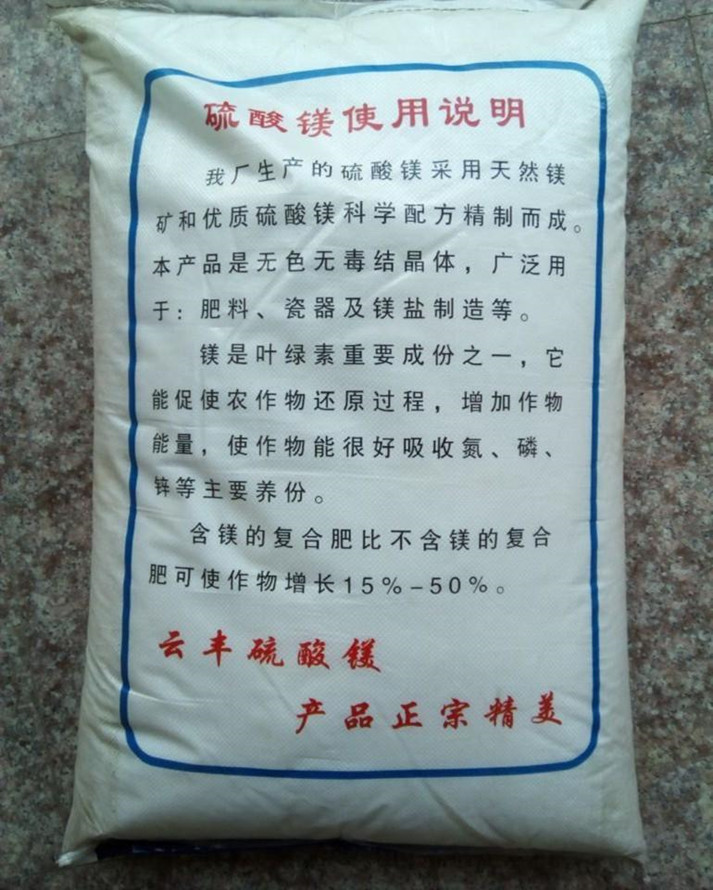 硫酸镁使用说明
我厂生产的硫酸镁采用天然镁
矿和优质硫酸镁科学配方精制而成。
本产品是无色无毒结晶体，广泛用
于：肥料、瓷器及镁盐制造等。
镁是叶绿素重要成份之一，它
能促使农作物还原过程，增加作物
能量，使作物能很好吸收氮、磷、
锌等主要养份。
含镁的复合肥比不含镁的复合
肥可使作物增长15%-50%。
云丰硫酸镁
产品正宗精美